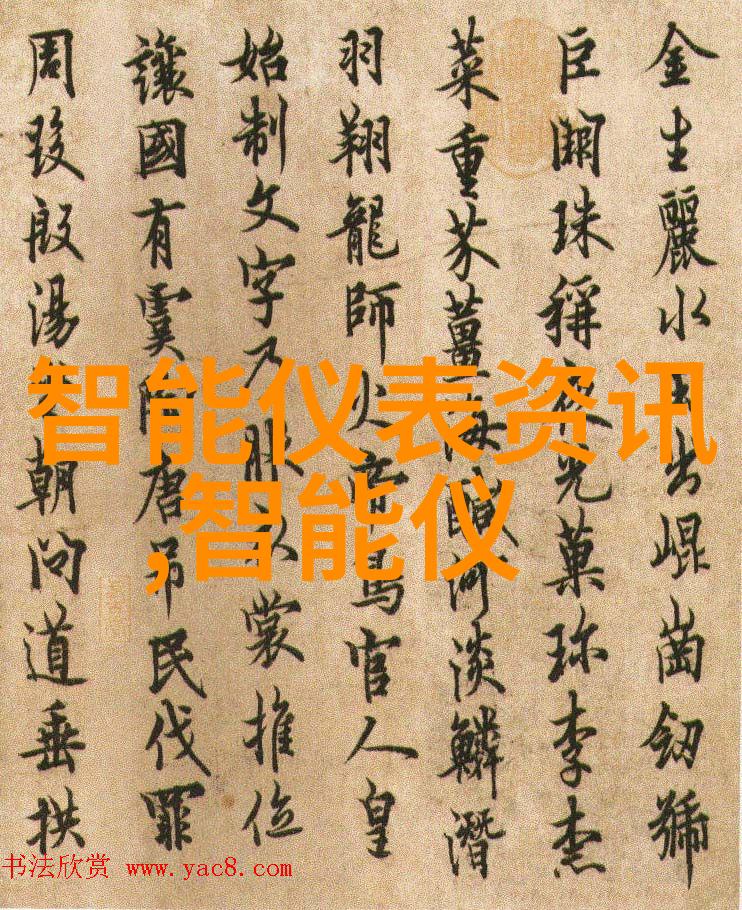 金生麗水玉出崐崗劒號
巨闕珠稱夜光菓珎李柰
菜重芥薑海醎河淡鱗潛
羽翔龍師火帝鳥官人皇
始制文字乃服衣裳推位
讓國有虞陶唐弔民伐罪
周發殷湯朝問道垂拱
智能仪表资讯
,智能仪
书法欣赏 www.yac8.com